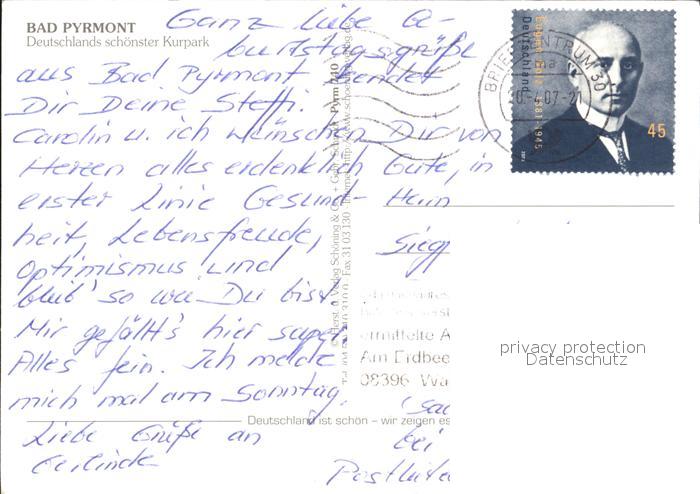 BAD PYRMONT
Deutschlands schönster Kurpark
Ganz liebe Ge-
burtstagsgrüße
aus Bad Pyrmont sendet
Dir Deine Steffi.
Carolin u. ich wünschen Dir von
Herzen alles erdenklich Gute, in
erster Linie Gesund-
heit, Lebensfreude,
Optimismus und
bleib' so wie Du bist
Mir gefällt's hier super
Alles fein. Ich melde
mich mal am Sonntag.
Liebe Grüße an
Gerlinde
Deutschland ist schön – wir zeigen es
Pyrm 740
Deutschland
1881-1945
45
BRIEFZENTRUM 30
Hain
Siegf
ermittelte A
Am Erdbee
08396 Wa
bei
privacy protection
Datenschutz